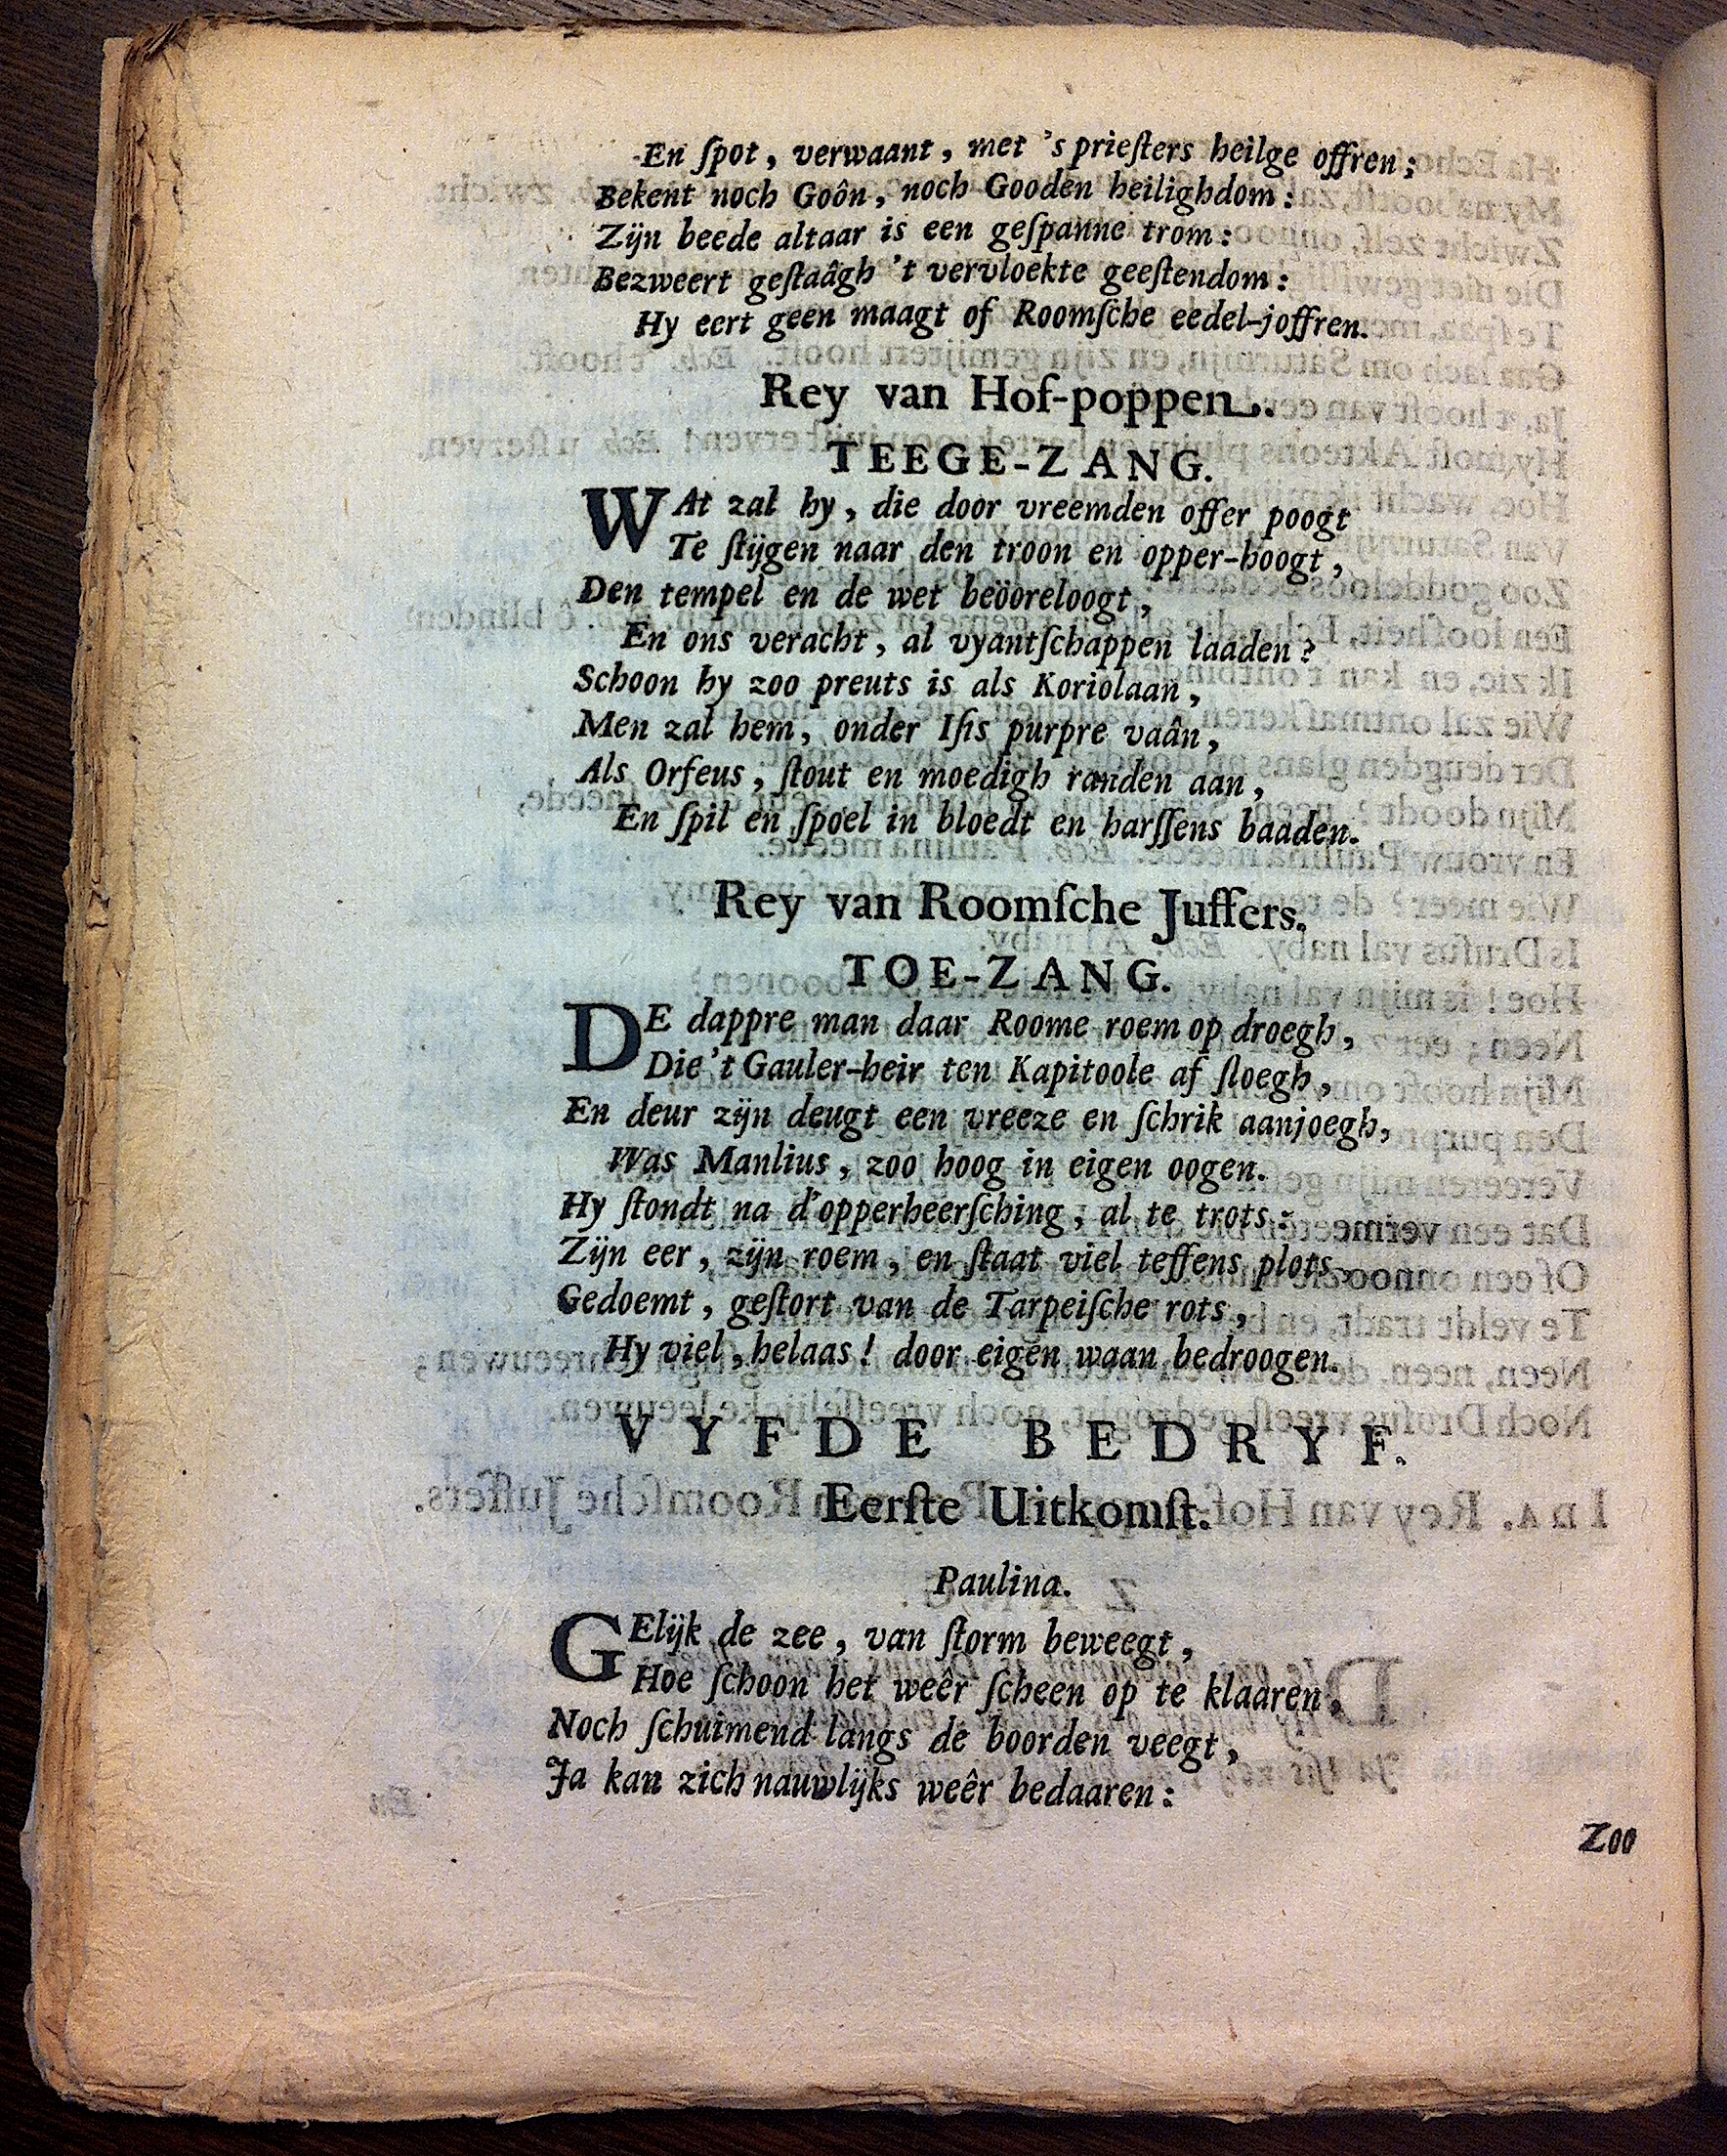 En ſpot, verwaant, met 's prieſters heilge offren;
Bekent noch Goôn, noch Gooden heilighdom:
Zijn beede altaar is een geſpanne trom:
Bezweert geſtaâgh 't vervloekte geeſtendom:
Hy eert geen maagt of Roomſche eedel-joffren.
Rey van Hof-poppen.
TEEGE-ZANG.
WAt zal hy, die door vreemden offer poogt
Te ſtijgen naar den troon en opper-hoogt,
Den tempel en de wet beöoreloogt,
En ons veracht, al vyantſchappen laaden?
Schoon hy zoo preuts is als Koriolaan,
Men zal hem, onder Iſis purpre vaân,
Als Orfeus, ſtout en moedigh randen aan,
En ſpil en ſpoel in bloedt en harſſens baaden.
Rey van Roomſche Juffers.
TOE-ZANG.
DE dappre man daar Roome roem op droegh,
Die 't Gauler-heir ten Kapitoole af ſloegh,
En deur zijn deugt een vreeze en ſchrik aanjoegh,
Was Manlius, zoo hoog in eigen oogen.
Hy ſtondt na d'opperheerſching, al te trots:
Zijn eer, zijn roem, en ſtaat viel teffens plots,
Gedoemt, geſtort van de Tarpeiſche rots,
Hy viel, helaas! door eigen waan bedroogen.
VYFDE BEDRYF.
Eerſte Uitkomſt.
Paulina.
GElijk de zee, van ſtorm beweegt,
Hoe ſchoon het weêr ſcheen op te klaaren,
Noch ſchuimend langs de boorden veegt,
Ja kan zich nauwlijks weêr bedaaren:
Zoo